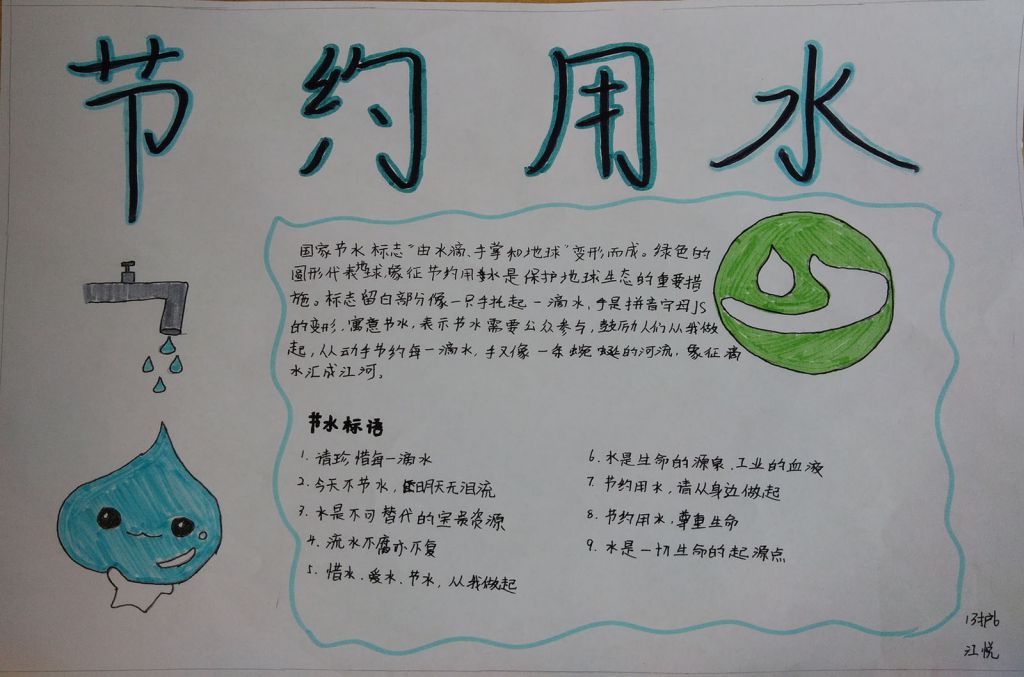 节约用水
国家节水标志“由水滴、手掌和地球”变形而成。绿色的
圆形代表地球，象征节约用水是保护地球生态的重要措
施。标志留白部分像一只手托起一滴水，手是拼音字母JS
的变形，寓意节水，表示节水需要公众参与，鼓励人们从我做
起，从动手节约每一滴水，手又像一条蜿蜒的河流，象征滴
水汇成江河。
节水标语
1. 请珍惜每一滴水
2. 今天不节水，明天无泪流
3. 水是不可替代的宝贵资源
4. 流水不腐亦不复
5. 惜水、爱水、节水，从我做起
6. 水是生命的源泉、工业的血液
7. 节约用水，请从身边做起
8. 节约用水，尊重生命
9. 水是一切生命的起源点
13护6
江悦